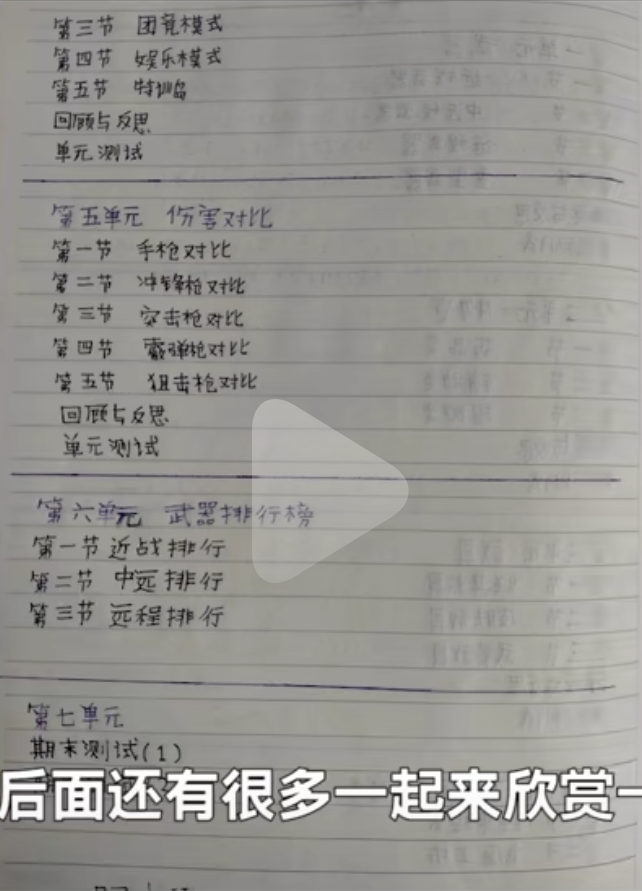 第三节 团竞模式
第四节 娱乐模式
第五节 特训岛
回顾与反思
单元测试
第五单元 伤害对比
第一节 手枪对比
第二节 冲锋枪对比
第三节 突击枪对比
第四节 霰弹枪对比
第五节 狙击枪对比
回顾与反思
单元测试
第六单元 武器排行榜
第一节 近战排行
第二节 中远排行
第三节 远程排行
第七单元
期末测试(1)
后面还有很多一起来欣赏一